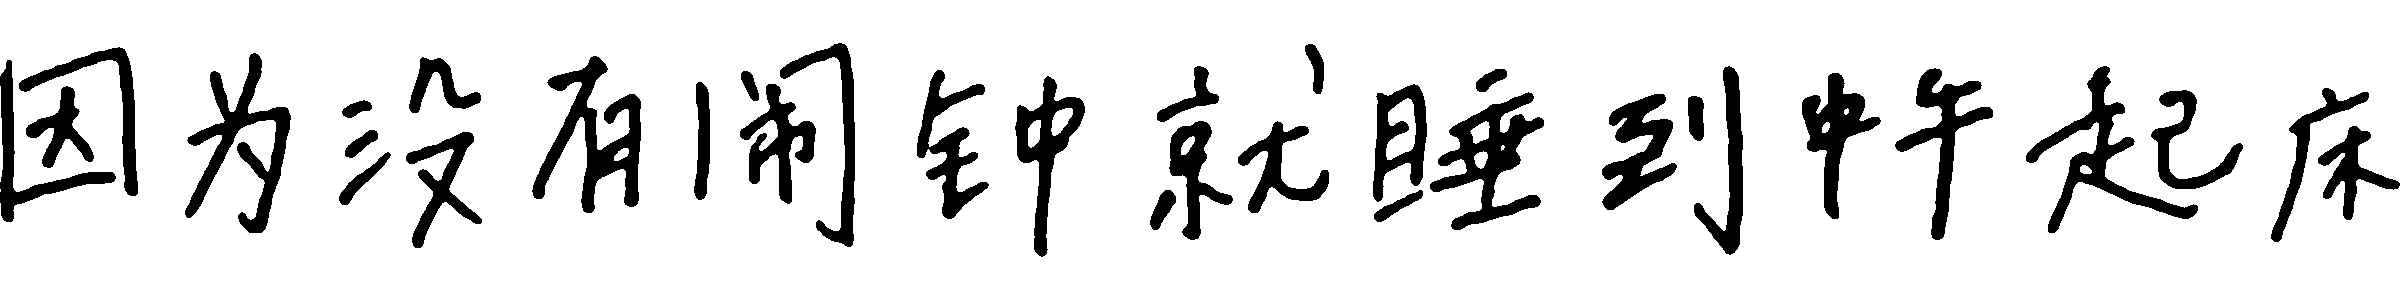 因为没有闹钟就睡到中午起床